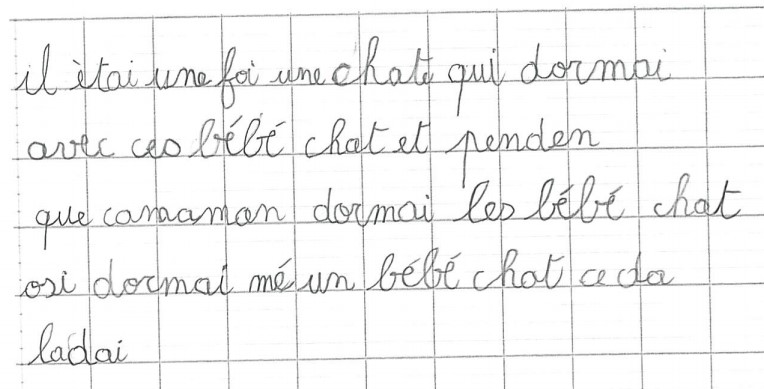 il ètai une foi une chate qui dormai
avec ces bébé chat et penden
que camaman dormai les bébé chat
osi dormai mé un bébé chat ce da
ladai